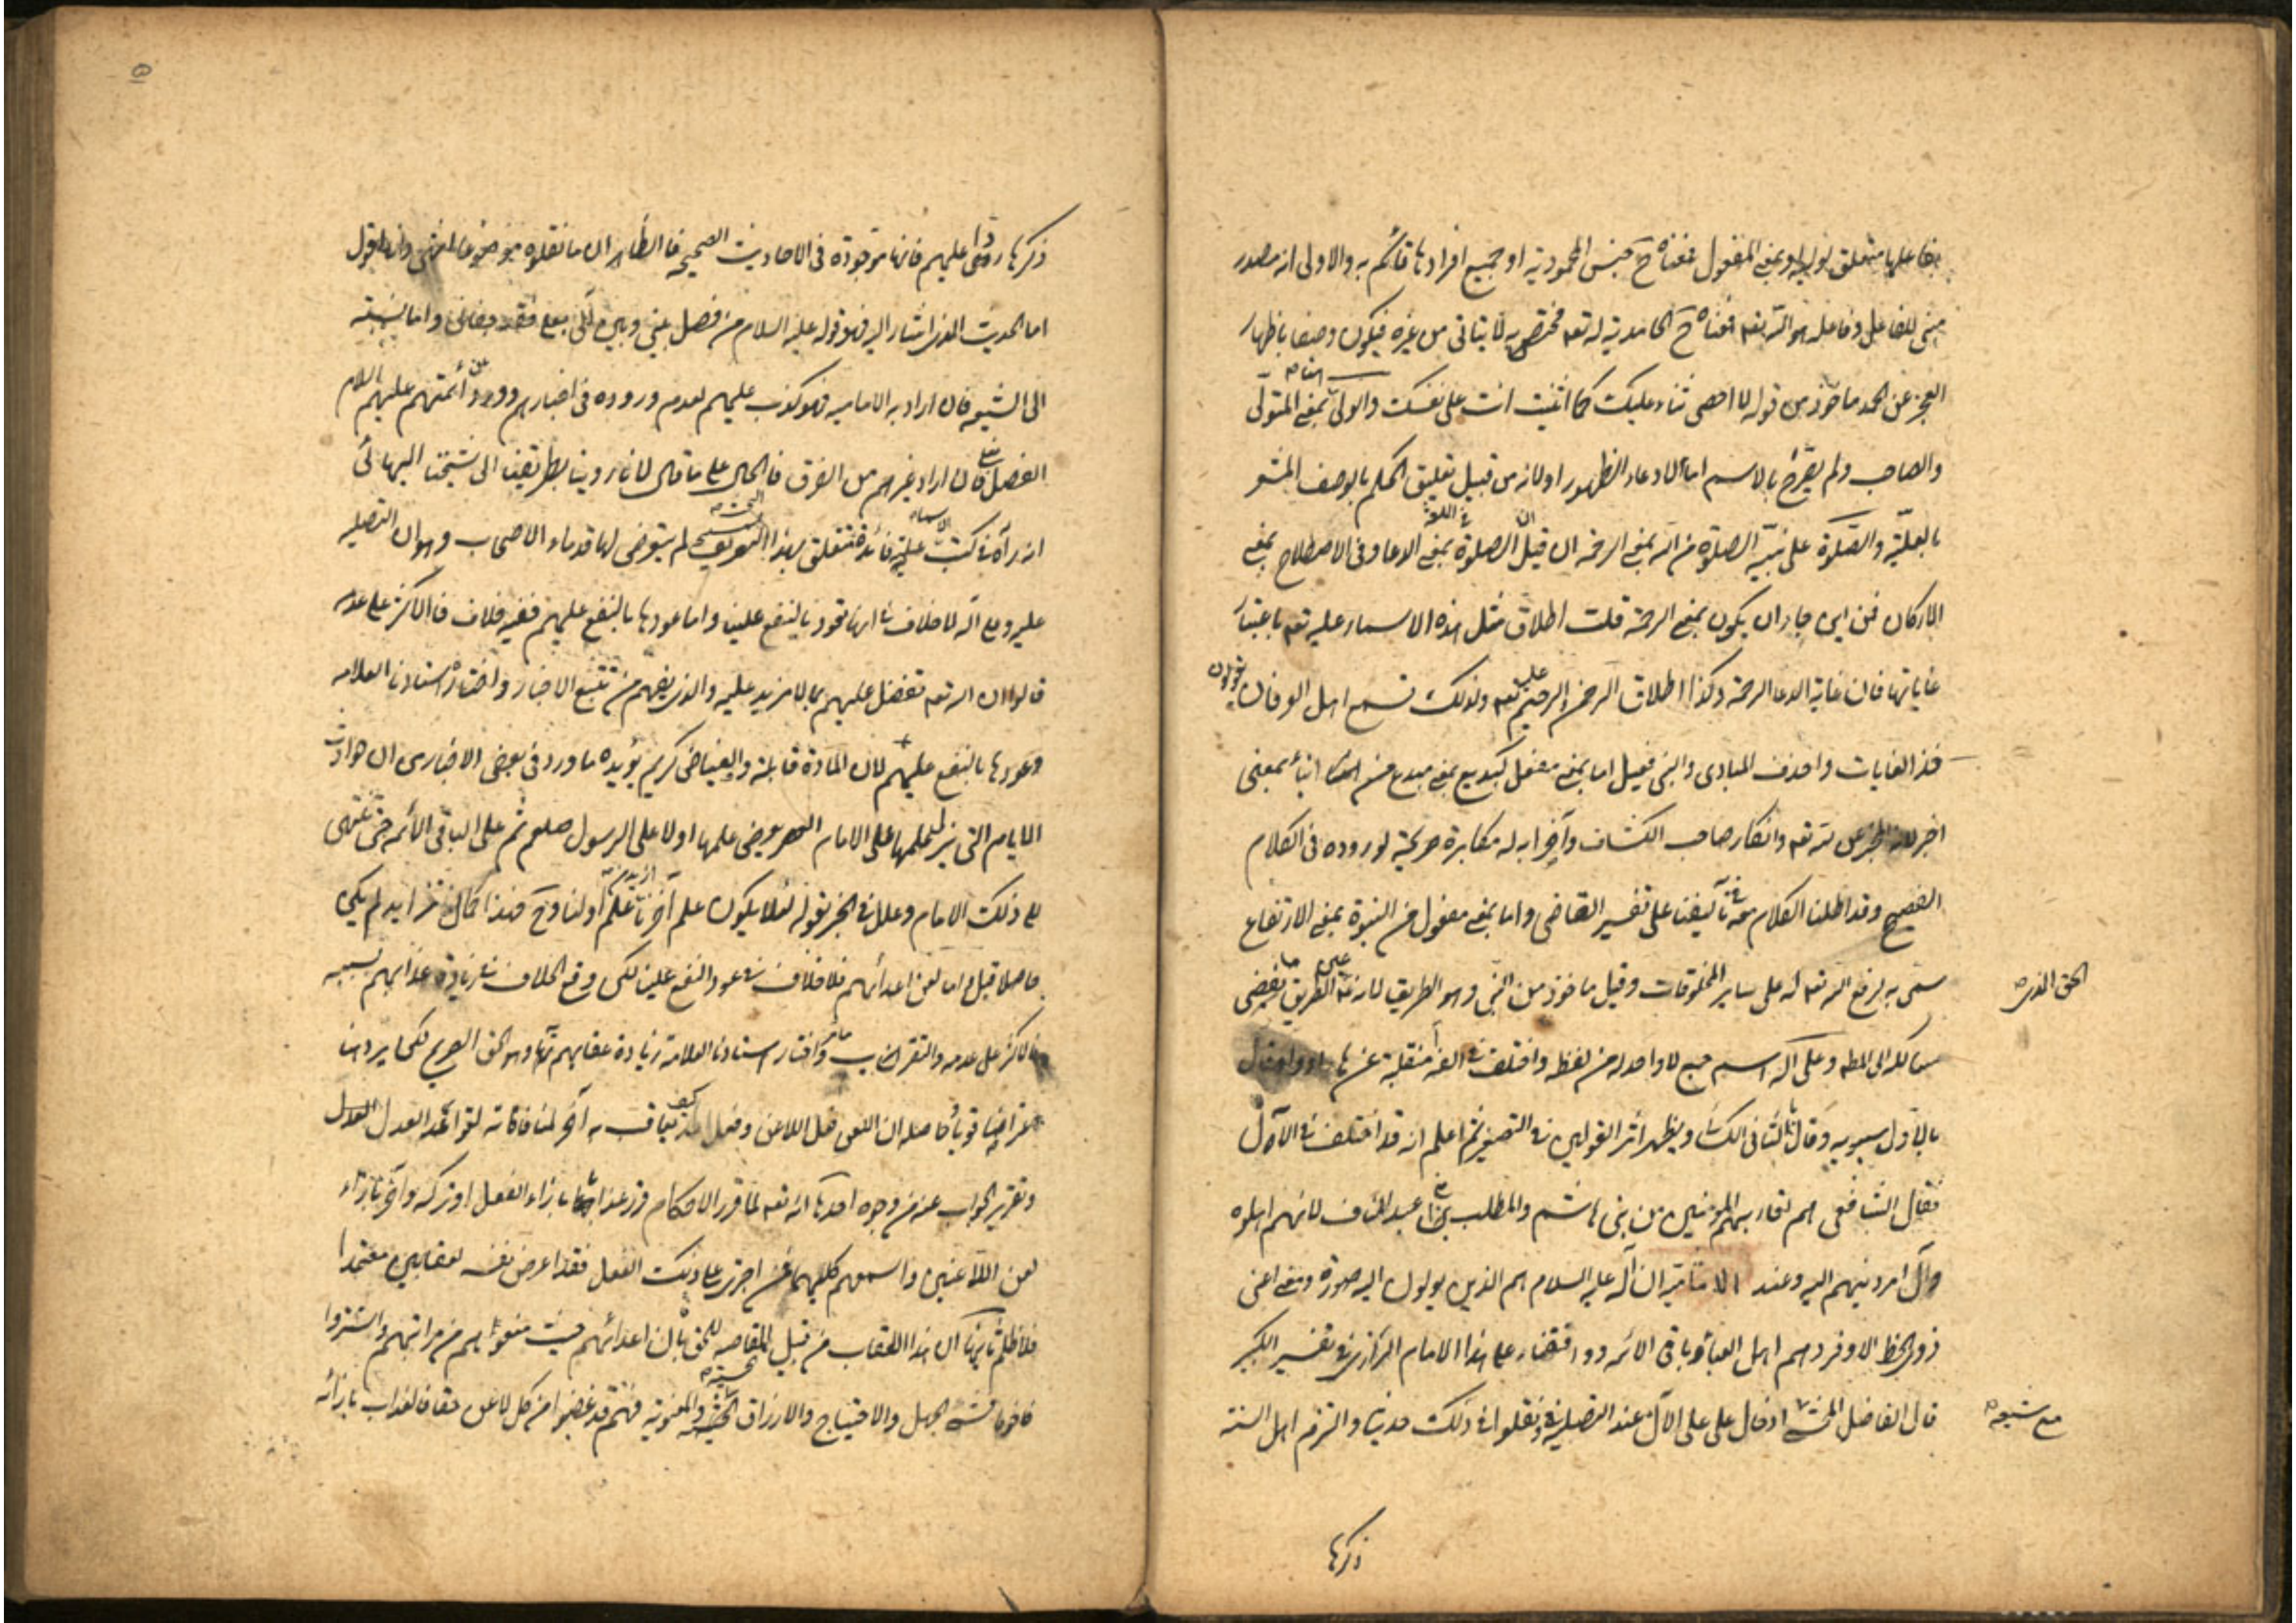 متعلق اولي او بمعنى المفعول فمعناه ح جنس المحمودية او جميع افرادها قائم به والاولى انه مصدر
مبنى للفاعل وفاعله هو الله تعه فمعناه ح الحامدية له تعه مختص به لا يتاتى من غيره فيكون وصفا باظهار
العجز عن الحمد ماخوذ من قوله لا احصى ثناء عليك كما اثنيت انت على نفسك والولى بمعنى المتولى
والصاحب ولم يصرح بالاسم اما لادعاء الظهور او لانه من قبيل تعليق الحكم بالوصف المشعر
بالعلية والصلوة على نبيه الصلوة من الله بمعنى الرحمة ان قيل ان الصلوة في اللغة بمعنى الدعا وفى الاصطلاح بمعنى
الاركان فمن اين جاز ان يكون بمعنى الرحمة قلت اطلاق مثل هذه الاسماء عليه تعه باعتبار
غاياتها فان غاية الدعا الرحمة وكذا اطلاق الرحمن الرحيم عليه تعه ولذلك تسمع اهل العرفان يقولون
خذ الغايات واحذف المبادى والنبى فعيل اما بمعنى مفعل كبديع بمعنى مبدع من انبأ بمعنى
اخبر لانه اخبر عن الله تعه وانكار صاحب الكشاف وآخر ابه له مكابرة صريحة لوروده فى الكلام
الفصيح وقد اطلنا الكلام معه في تآليفنا على تفسير القاضى واما بمعنى مفعول من النبوة بمعنى الارتفاع
سمى به لرفع الله تعه له على ساير المخلوقات وقيل ماخوذ من النبى وهو الطريق لانه عليه الطريق
الحق الذى
سالكه الى المط وعلى اله اسم جمع لا واحد له من لفظه واختلف في الفه أ منقلبة عن هاء او واو فقال
بالاول سيبويه وقال بالثانى الكسا ويظهر اثر القولين في التصغير ثم اعلم انه قد اختلف في الآل
فقال الشافعى هم اقاربه المؤمنين من بنى هاشم والمطلب ابنا عبد مناف لانهم اهله
وآل امر دينهم اليه وعند الامامية ان آله عليه السلام هم الذين يؤلون اليه صورة ومعنى اعنى
ذوى الحظ الاوفر وهم اهل العبا وباقى الائمة ووافقنا على هذا الامام الرازى في تفسير الكبير
قال الفاضل المحشى ادخال على على الآل عند التصلية ونقلوا في ذلك حديثا والتزم اهل السنة
مع شيعة
ذكرها
ذكرها ردا عليهم فانها موجودة فى الاحاديث الصحيحة فالظاهر ان ما نقلوه موضوع انتهى واقول
اما الحديث الذى اشار اليه فهو قوله عليه السلام من فصل بينى وبين آلى بعلى فقد جفانى واما نسبته
الى الشيعة فان اراد به الامامية فهو كذب عليهم لعدم وروده فى اخبارهم وورود عن أئمتهم عليهم السلام
الفصل بعلى فان اراد غيرهم من الفرق فالحال على ما قال لانا روينا بطريقنا الى شيخنا البهائى
انه رآه في كتب الاسماعيلية فائدة تتعلق بهذا التعريف لم يتعرض لها قدماء الاصحاب وهو ان التصلية
عليه وعلى آله لا خلاف في انها تعود بالنفع علينا واما عودها بالنفع عليهم ففيه خلاف فالاكثر على عدمه
قالوا ان الله تعه تفضل عليهم بما لا مزيد عليه والذى يفهم من تتبع الاخبار واختاره استادنا العلامه
وعودها بالنفع عليهم لان المادة قابلة والفياض كريم يؤيده ما ورد فى بعض الاخبار من ان حوادث
الايام التى ينزل علمها على الامام العصر يعرض علمها اولا على الرسول صلعم ثم على الباقى الائمه حتى تنتهى
على ذلك الامام وعلل في الخبر بقوله لئلا يكون علم آخرنا ازيد من علم اولنا وح فهذا كمال متزايد لم يكن
حاصلا قبل واما لعن اعدائهم فلا خلاف في عود النفع علينا لكن وقع الخلاف في زيادة عذابهم بسببه
فالاكثر على عدمه والتقرب ما مر واختار استادنا العلامة زيادة عقابهم بها وهو الحق الصريح لكن يرد هنا
اعتراضا قويا حاصله ان اللعن فعل اللاعن وفعل احد كيف يعاقب به آخر لمنافاته لقواعد العدل
وتقرير الجواب عنه من وجوه احدها انه تعه لما قرر الاحكام قرر عذابا بازاء الفعل او تركه وآخر بازاء
لعن اللاعنين واسمعهم كليهما فمن اجترى على ذلك الفعل فقد اعرض نفسه لعقابين معتمدا
فلا ظلم ثانيها ان هذا العقاب من قبيل المقاصه للحق بان اعدائهم حيث منعوهم من مراتبهم واشتروا
الجهل والاحتياج والارزاق الحسية والمعنوية فهم قد غصبوا من كل لاعن حقا فالعذاب بازائه